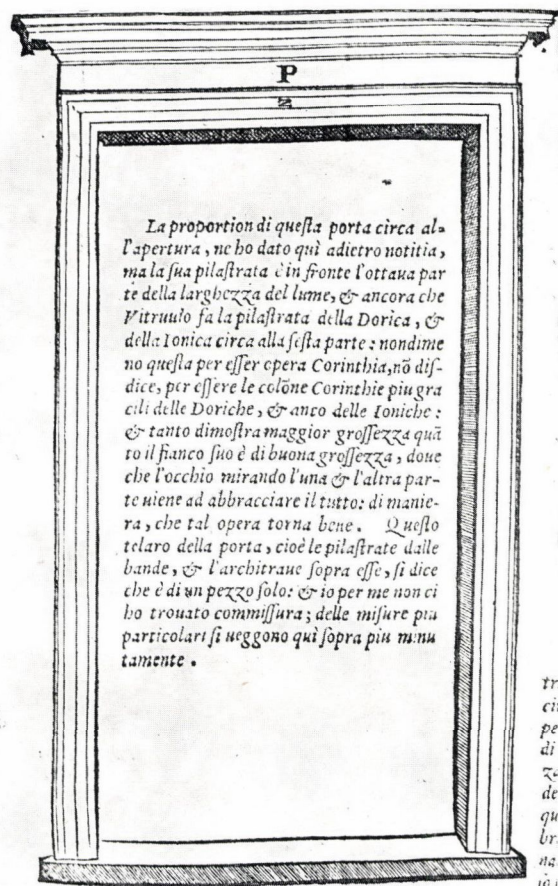 P
La proportion di queſta porta circa al⸗
l'apertura, ne ho dato quì adietro notitia,
ma la ſua pilaſtrata è in fronte l'ottaua par
te della larghezza del lume, & ancora che
Vitruuio fa la pilaſtrata della Dorica, &
della Ionica circa alla ſeſta parte: nondime
no queſta per eſſer opera Corinthia, nõ diſ-
dice, per eſſere le colõne Corinthie piu gra
cili delle Doriche, & anco delle Ioniche:
& tanto dimoſtra maggior groſſezza quã
to il fianco ſuo è di buona groſſezza, doue
che l'occhio mirando l'una & l'altra par-
te uiene ad abbracciare il tutto: di manie-
ra, che tal opera torna bene. Queſto
telaro della porta, cioè le pilaſtrate dalle
bande, & l'architraue ſopra eſſe, ſi dice
che è di un pezzo ſolo: & io per me non ci
ho trouato commiſſura; delle miſure piu
particolari ſi ueggono quì ſopra piu minu
tamente.
tr
ci
pe
di
de
qu
br
na